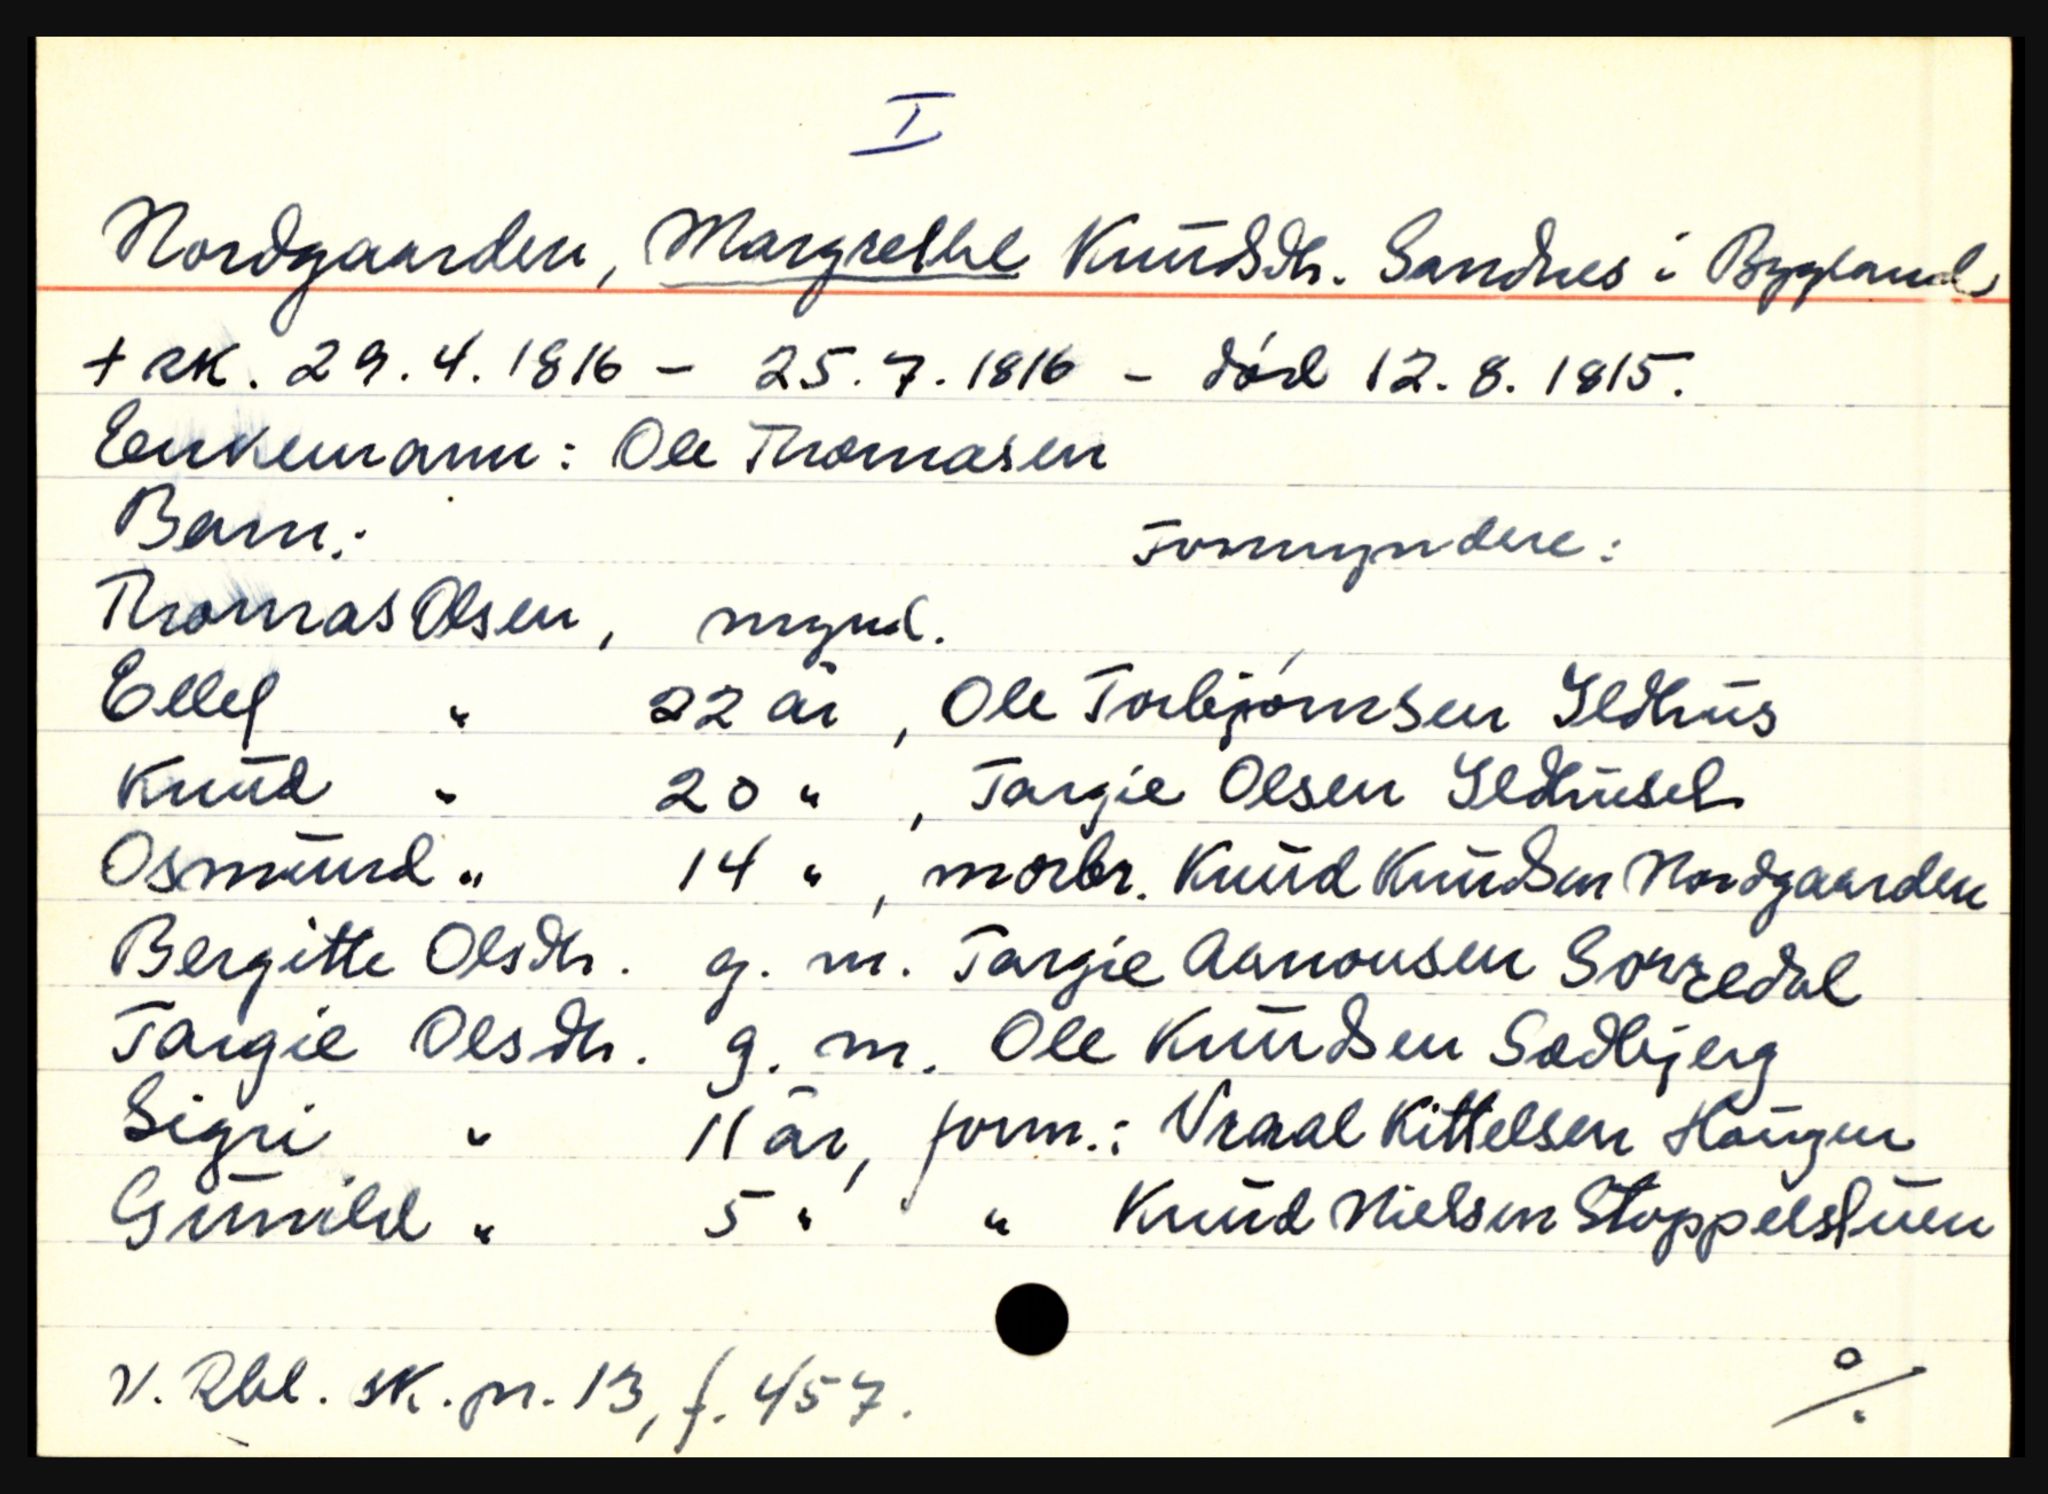 I
Nordgaarden, Margrethe Knudsdtr. Sandnes i Bygland
+ sk. 29.4.1816 - 25.7.1816 - død 12.8.1815.
Enkemann: Ole Thomasen
Barn:
Formyndere:
Thomas Olsen, mynd.
Ellef " 22 år, Ole Torbjørnsen Ildhus
Knud " 20 ", Targie Olsen Ildhuset
Osmund " 14 ", morbr. Knud Knudsen Nordgaarden
Bergitte Olsdtr. g. m. Targie Aanonsen
Targie Olsdtr. g. m. Ole Knudsen Sædbjerg
Sigri " 11 år, form.: Vraal Kittelsen Haugen
Gunild " 5 " " Knud Nielsen Stoppelstuen
V. Rbl. sk. pr. 13, f. 457.
%